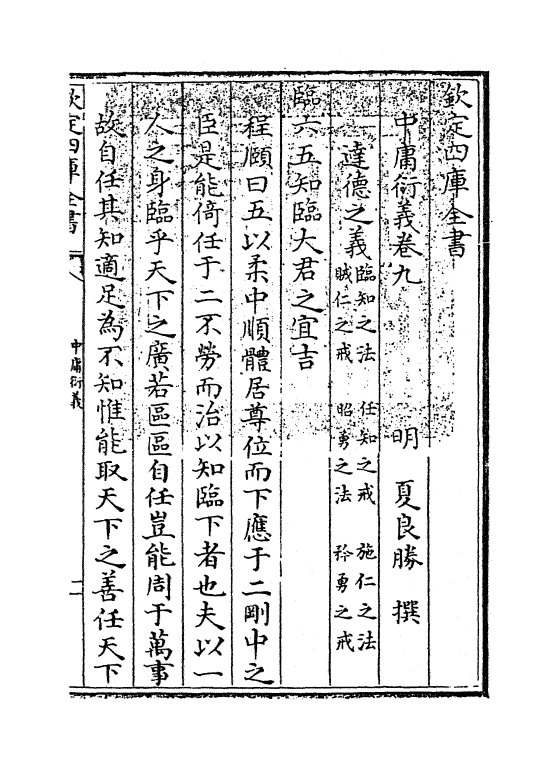 欽定四庫全書
中庸衍義卷九
明 夏良勝 撰
達德之義
臨知之法 任知之戒 施仁之法
賊仁之戒 昭勇之法 矜勇之戒
臨六五知臨大君之宜吉
程頤曰五以柔中順體居尊位而下應于二剛中之
臣是能倚任于二不勞而治以知臨下者也夫以一
人之身臨乎天下之廣若區區自任豈能周于萬事
故自任其知適足為不知惟能取天下之善任天下
欽定四庫全書
中庸衍義